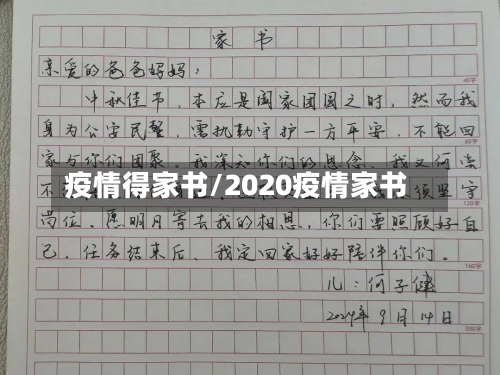 家书
亲爱的爸爸妈妈：
中秋佳节，本应是阖家团圆之时，然而我
40字
身为公安民警，需执勤守护一方平安，不能回
80字
家与你们团聚。我深知你们的思念，我又何尝
不
疫情得家书/2020疫情家书
须坚守
120字
岗位。愿明月寄去我的相思，你们要照顾好自
己，任务结束后，我定回家好好陪伴你们。
160字
儿：何子健
2024年9月14日
200字